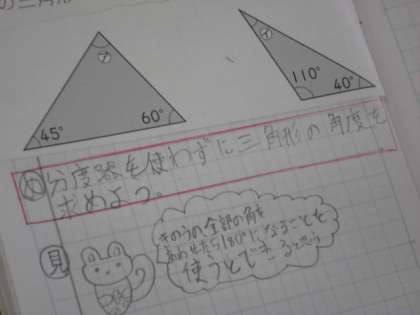 の三角形
ア
45°
60°
イ
110°
40°
め 分度器を使わずに三角形の角度を
求めよう。
見
きのうの全部の角を
あわせたら180°になることを
使うとできると思う